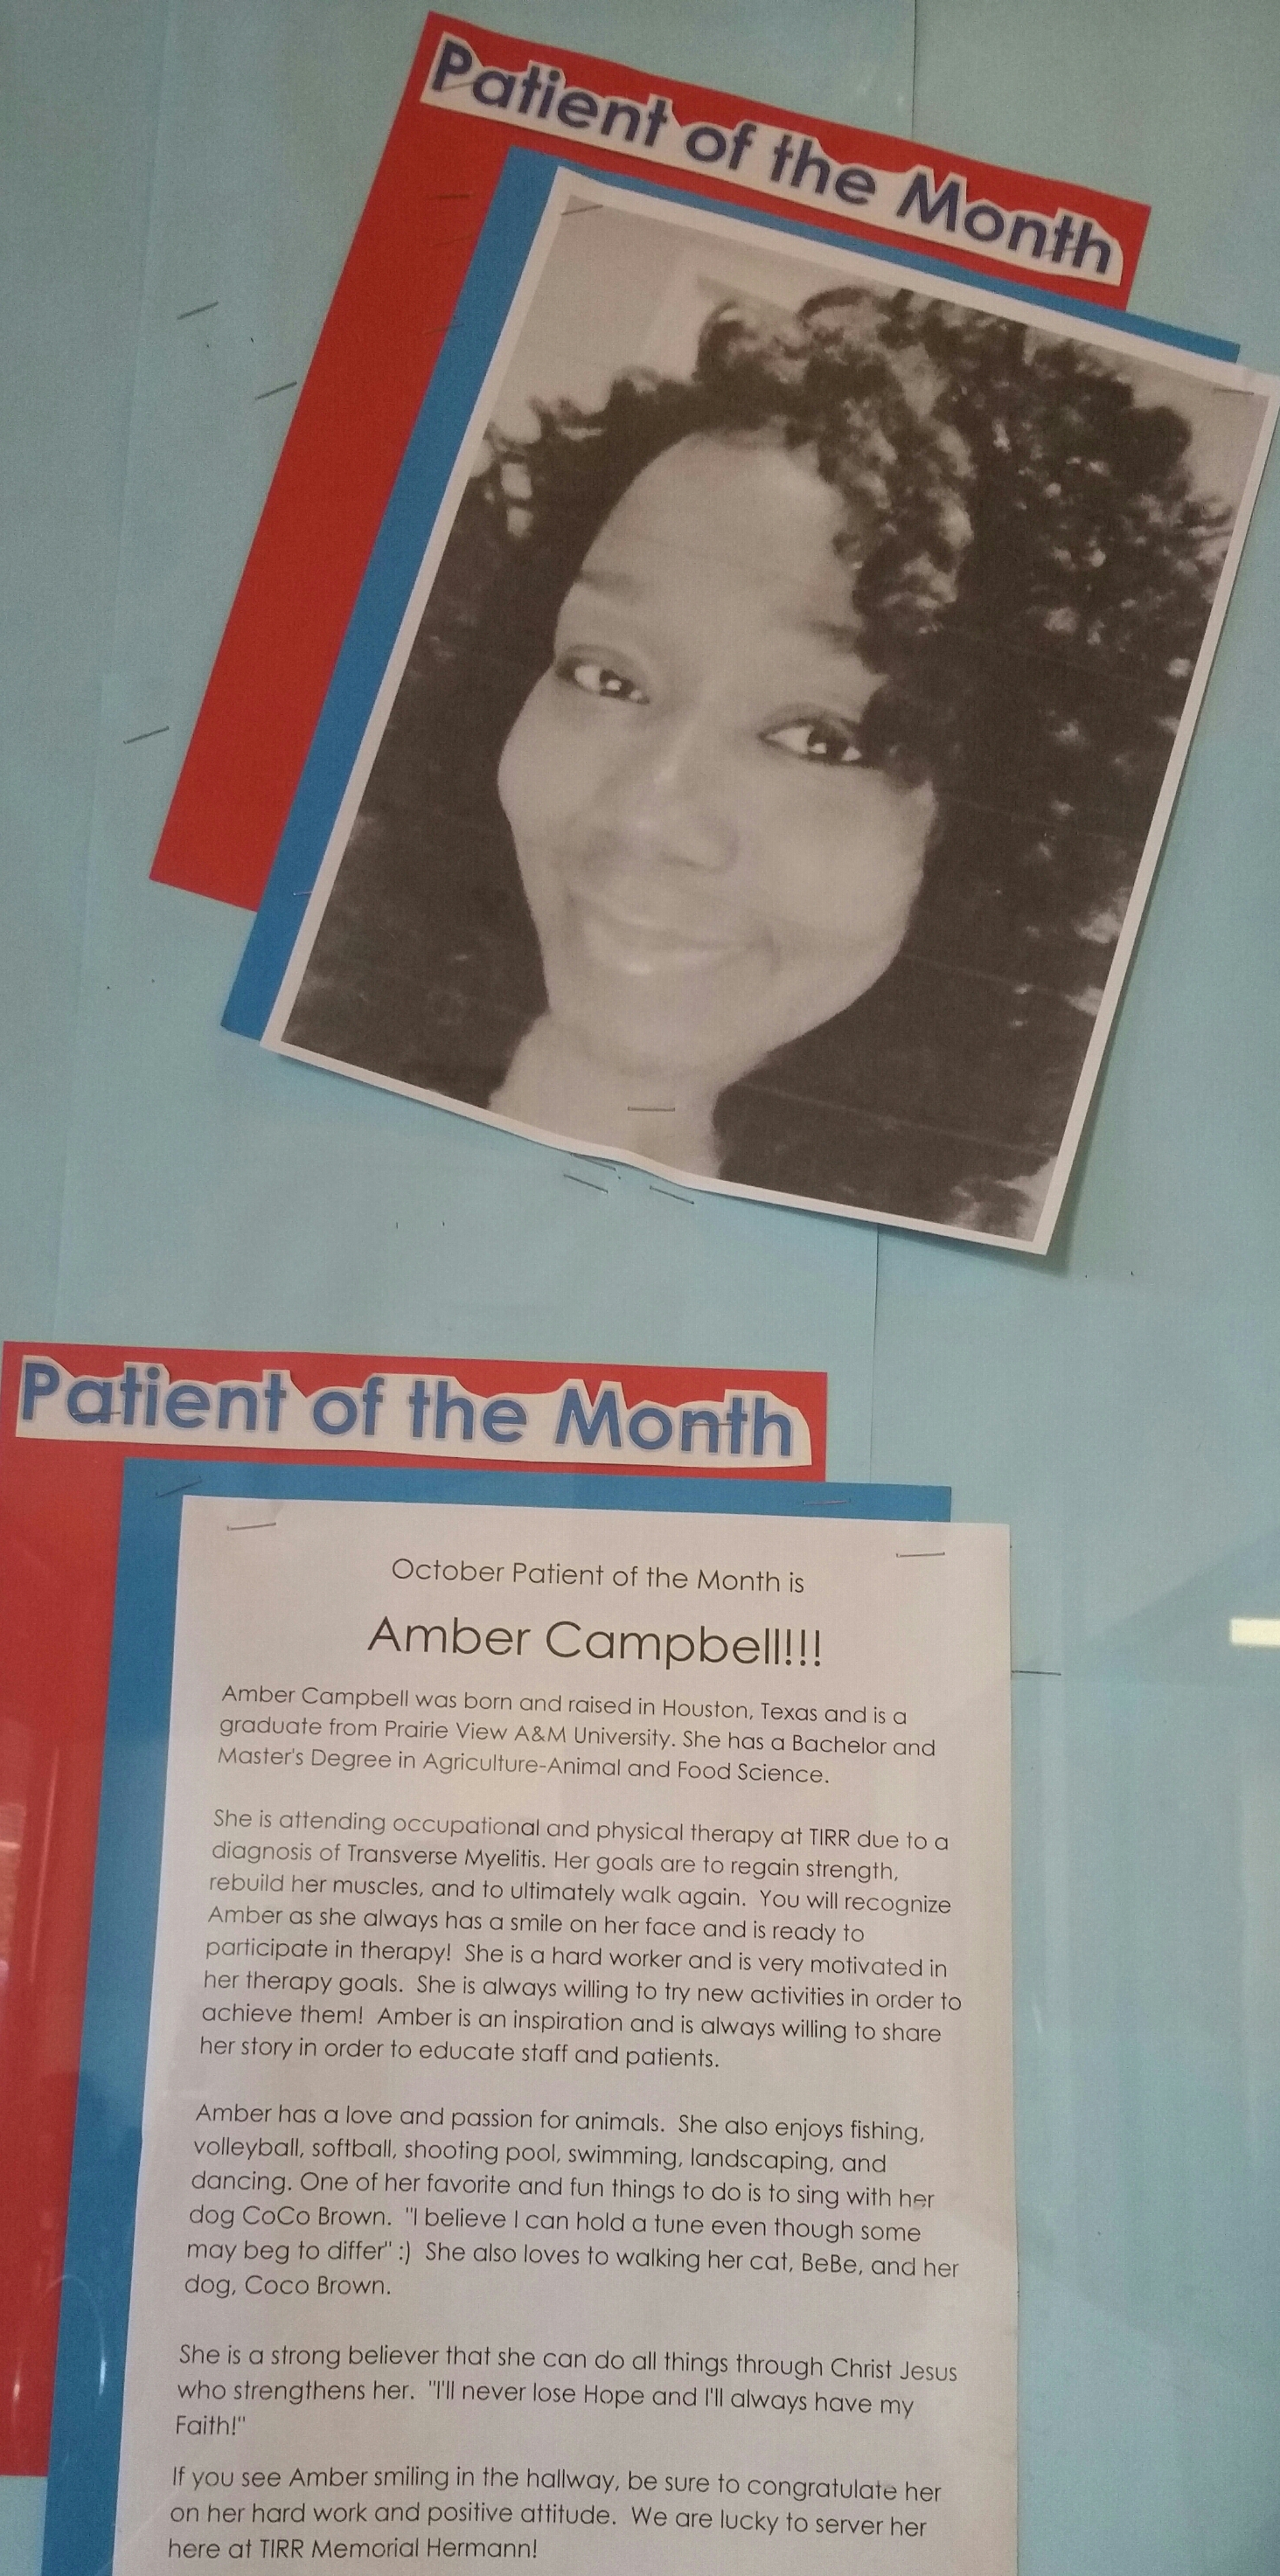 Patient of the Month
Patient of the Month
October Patient of the Month is
Amber Campbell!!!
Amber Campbell was born and raised in Houston, Texas and is a
graduate from Prairie View A&M University. She has a Bachelor and
Master's Degree in Agriculture-Animal and Food Science.
She is attending occupational and physical therapy at TIRR due to a
diagnosis of Transverse Myelitis. Her goals are to regain strength,
rebuild her muscles, and to ultimately walk again.  You will recognize
Amber as she always has a smile on her face and is ready to
participate in therapy!  She is a hard worker and is very motivated in
her therapy goals.  She is always willing to try new activities in order to
achieve them!  Amber is an inspiration and is always willing to share
her story in order to educate staff and patients.
Amber has a love and passion for animals.  She also enjoys fishing,
volleyball, softball, shooting pool, swimming, landscaping, and
dancing. One of her favorite and fun things to do is to sing with her
dog CoCo Brown.  "I believe I can hold a tune even though some
may beg to differ" :)  She also loves to walking her cat, BeBe, and her
dog, Coco Brown.
She is a strong believer that she can do all things through Christ Jesus
who strengthens her.  "I'll never lose Hope and I'll always have my
Faith!"
If you see Amber smiling in the hallway, be sure to congratulate her
on her hard work and positive attitude.  We are lucky to server her
here at TIRR Memorial Hermann!